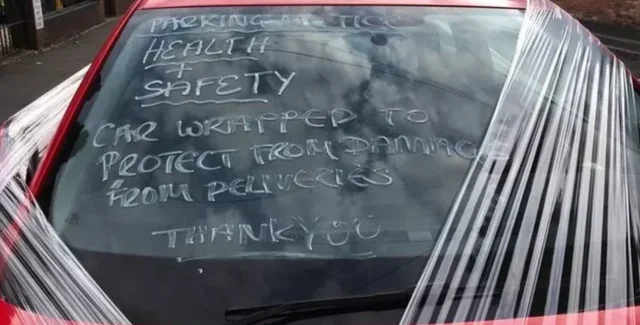 PARKING NOTICE
HEALTH
+
SAFETY
CAR WRAPPED TO
PROTECT FROM DAMMAGE
FROM DELIVERIES
THANKYOU